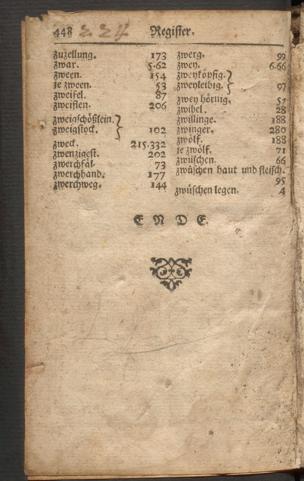 448 Register.
zuzellung. 173
zwar. 5.62
zween. 154
je zween. 53
zweifel. 87
zweiflen. 206
zweigschößlein.
zweigstock. 102
zweck. 215.332
zwenzigest. 202
zwerchfäl. 73
zwerchhand. 177
zwerchweg. 144
zwerg. 99
zwey. 6.66
zweyköpfig.
zweyleibig. 97
zwey hörnig. 57
zwibel. 28
zwillinge. 188
zwinger. 280
zwölf. 188
je zwölf. 71
zwüschen. 66
zwüschen haut und fleisch.
95
zwüschen legen. 4
ENDE.